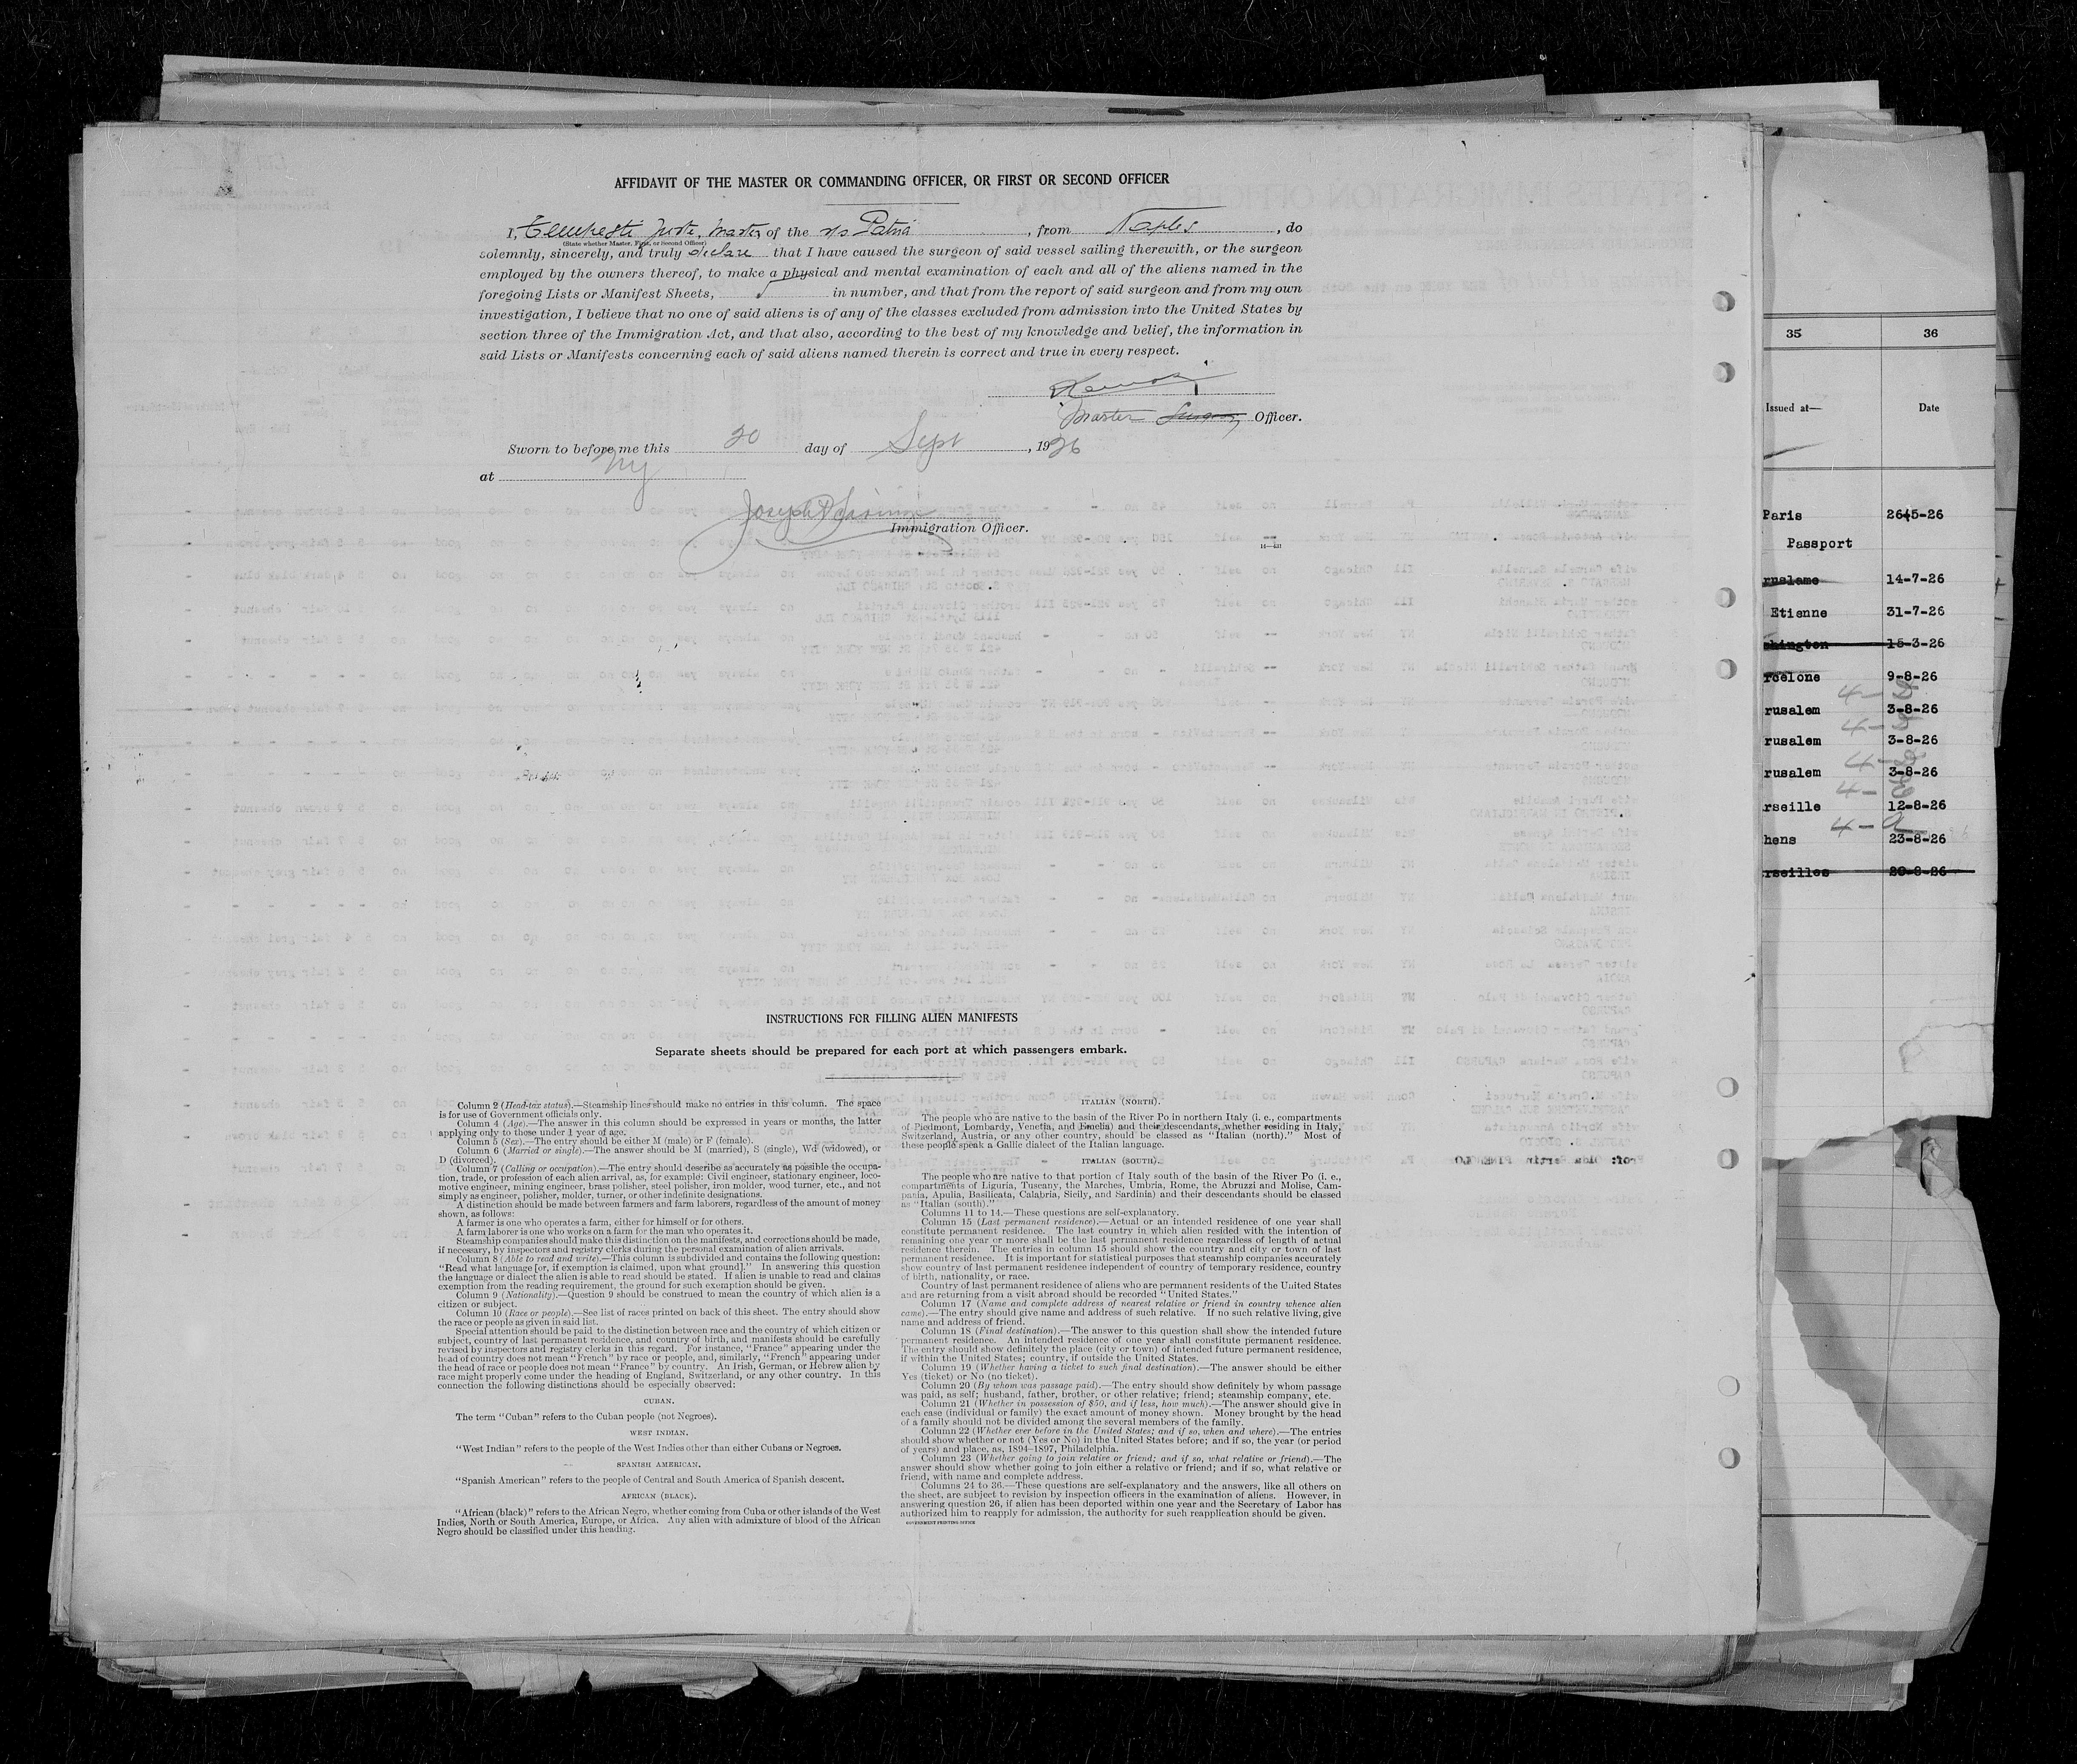 AFFIDAVIT OF THE MASTER OR COMMANDING OFFICER, OR FIRST OR SECOND OFFICER
I, Master of the s/s Patria, from Naples, do
(State whether Master, First, or Second Officer)
solemnly, sincerely, and truly declare that I have caused the surgeon of said vessel sailing therewith, or the surgeon
employed by the owners thereof, to make a physical and mental examination of each and all of the aliens named in the
foregoing Lists or Manifest Sheets, in number, and that from the report of said surgeon and from my own
investigation, I believe that no one of said aliens is of any of the classes excluded from admission into the United States by
section three of the Immigration Act, and that also, according to the best of my knowledge and belief, the information in
said Lists or Manifests concerning each of said aliens named therein is correct and true in every respect.
Master Officer.
Sworn to before me this 20 day of Sept, 1926
at NY
Joseph
Immigration Officer.
INSTRUCTIONS FOR FILLING ALIEN MANIFESTS
Separate sheets should be prepared for each port at which passengers embark.
Column 2 (Head-tax status).—Steamship lines should make no entries in this column. The space
is for use of Government officials only.
Column 4 (Age).—The answer in this column should be expressed in years or months, the latter
applying only to those under 1 year of age.
Column 5 (Sex).—The entry should be either M (male) or F (female).
Column 6 (Married or single).—The answer should be M (married), S (single), Wd (widowed), or
D (divorced).
Column 7 (Calling or occupation).—The entry should describe as accurately as possible the occupa-
tion, trade, or profession of each alien arrival, as, for example: Civil engineer, stationary engineer, loco-
motive engineer, mining engineer, brass polisher, steel polisher, iron molder, wood turner, etc., and not
simply as engineer, polisher, molder, turner, or other indefinite designations.
A distinction should be made between farmers and farm laborers, regardless of the amount of money
shown, as follows:
A farmer is one who operates a farm, either for himself or for others.
A farm laborer is one who works on a farm for the man who operates it.
Steamship companies should make this distinction on the manifests, and corrections should be made,
if necessary, by inspectors and registry clerks during the personal examination of alien arrivals.
Column 8 (Able to read and write).—This column is subdivided and contains the following question:
"Read what language [or, if exemption is claimed, upon what ground]." In answering this question
the language or dialect the alien is able to read should be stated. If alien is unable to read and claims
exemption from the reading requirement, the ground for such exemption should be given.
Column 9 (Nationality).—Question 9 should be construed to mean the country of which alien is a
citizen or subject.
Column 10 (Race or people).—See list of races printed on back of this sheet. The entry should show
the race or people as given in said list.
Special attention should be paid to the distinction between race and the country of which citizen or
subject, country of last permanent residence, and country of birth, and manifests should be carefully
revised by inspectors and registry clerks in this regard. For instance, "France" appearing under the
head of country does not mean "French" by race or people, and, similarly, "French" appearing under
the head of race or people does not mean "France" by country. An Irish, German, or Hebrew alien by
race might properly come under the heading of England, Switzerland, or any other country. In this
connection the following distinctions should be especially observed:
CUBAN.
The term "Cuban" refers to the Cuban people (not Negroes).
WEST INDIAN.
"West Indian" refers to the people of the West Indies other than either Cubans or Negroes.
SPANISH AMERICAN.
"Spanish American" refers to the people of Central and South America of Spanish descent.
AFRICAN (BLACK).
"African (black)" refers to the African Negro, whether coming from Cuba or other islands of the West
Indies, North or South America, Europe, or Africa. Any alien with admixture of blood of the African
Negro should be classified under this heading.
ITALIAN (NORTH).
The people who are native to the basin of the River Po in northern Italy (i. e., compartments
of Piedmont, Lombardy, Venetia, and Emelia) and their descendants, whether residing in Italy,
Switzerland, Austria, or any other country, should be classed as "Italian (north)." Most of
these people speak a Gallic dialect of the Italian language.
ITALIAN (SOUTH).
The people who are native to that portion of Italy south of the basin of the River Po (i. e.,
compartments of Liguria, Tuscany, the Marches, Umbria, Rome, the Abruzzi and Molise, Cam-
pania, Apulia, Basilicata, Calabria, Sicily, and Sardinia) and their descendants should be classed
as "Italian (south)."
Columns 11 to 14.—These questions are self-explanatory.
Column 15 (Last permanent residence).—Actual or an intended residence of one year shall
constitute permanent residence. The last country in which alien resided with the intention of
remaining one year or more shall be the last permanent residence regardless of length of actual
residence therein. The entries in column 15 should show the country and city or town of last
permanent residence. It is important for statistical purposes that steamship companies accurately
show country of last permanent residence independent of country of temporary residence, country
of birth, nationality, or race.
Country of last permanent residence of aliens who are permanent residents of the United States
and are returning from a visit abroad should be recorded "United States."
Column 17 (Name and complete address of nearest relative or friend in country whence alien
came).—The entry should give name and address of such relative. If no such relative living, give
name and address of friend.
Column 18 (Final destination).—The answer to this question shall show the intended future
permanent residence. An intended residence of one year shall constitute permanent residence.
The entry should show definitely the place (city or town) of intended future permanent residence,
if within the United States; country, if outside the United States.
Column 19 (Whether having a ticket to such final destination).—The answer should be either
Yes (ticket) or No (no ticket).
Column 20 (By whom was passage paid).—The entry should show definitely by whom passage
was paid, as self; husband, father, brother, or other relative; friend; steamship company, etc.
Column 21 (Whether in possession of $50, and if less, how much).—The answer should give in
each case (individual or family) the exact amount of money shown. Money brought by the head
of a family should not be divided among the several members of the family.
Column 22 (Whether ever before in the United States; and if so, when and where).—The entries
should show whether or not (Yes or No) in the United States before; and if so, the year (or period
of years) and place, as, 1894–1897, Philadelphia.
Column 23 (Whether going to join relative or friend; and if so, what relative or friend).—The
answer should show whether going to join either a relative or friend; and if so, what relative or
friend, with name and complete address.
Columns 24 to 36.—These questions are self-explanatory and the answers, like all others on
the sheet, are subject to revision by inspection officers in the examination of aliens. However, in
answering question 26, if alien has been deported within one year and the Secretary of Labor has
authorized him to reapply for admission, the authority for such reapplication should be given.
GOVERNMENT PRINTING OFFICE
35 36
Issued at— Date
Paris 26-5-26
Passport
ruslame 14-7-26
Etienne 31-7-26
shington 15-3-26
rcelone 9-8-26
rusalem 3-8-26
rusalem 3-8-26
rusalem 3-8-26
rseille 12-8-26
hens 23-8-26
rseilles 20-8-26